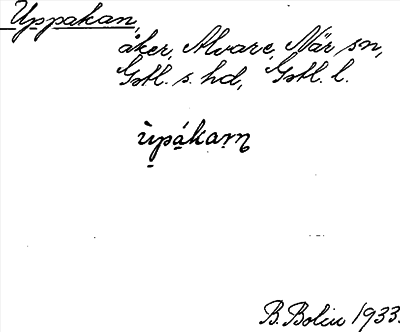 Uppakan,
åker, Alvare, När sn,
Gotl. s. hd, Gotl. l.
B. Bolin 1933.